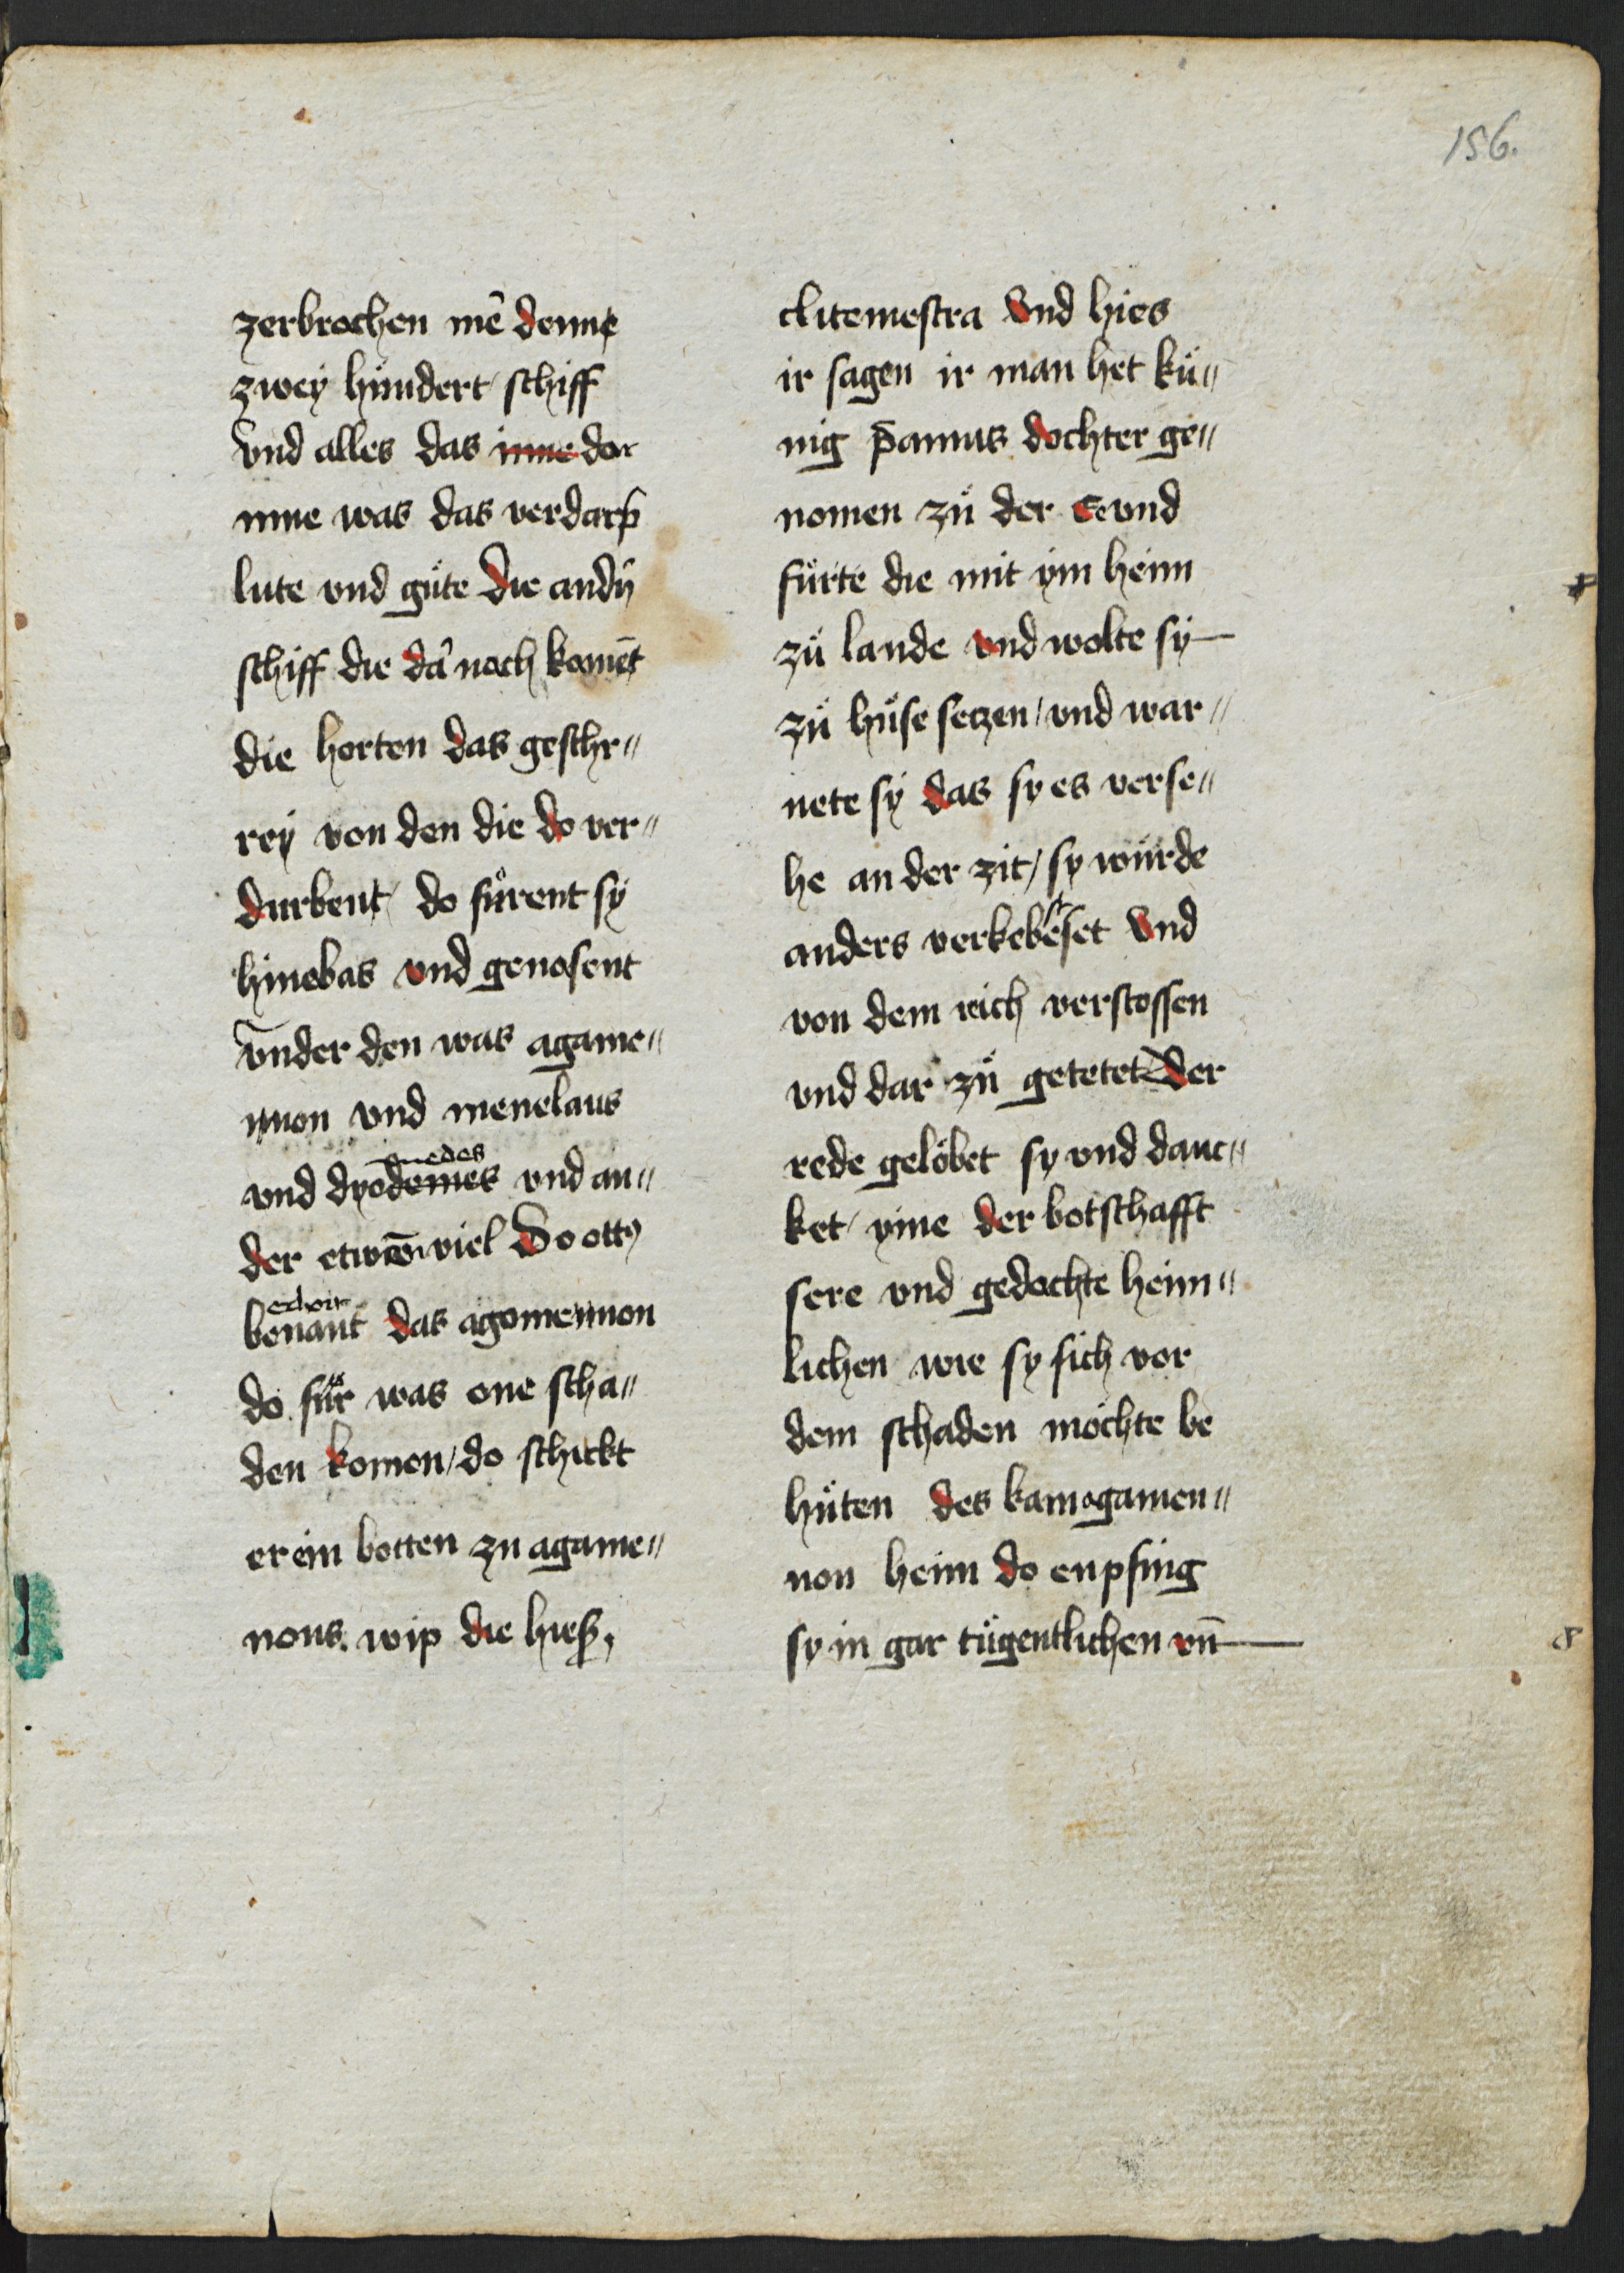 156.
zerbrochen mē denne
zwey hundert schiff
vnd alles das inne dar
inne was das verdarp
lute vnd gůte Die andn̄
schiff die dā noch komēt
die horten das geschr〃
rey von den die do ver〃
durbent / do fůrent sy
hinebas vnd genosent
vnder den was agame〃
nnon vnd menelaus
medes
vnd dyodemes vnd an〃
der etwēn viel Do ottꝰ
erhort
benant das agomennon
do fůr was one scha〃
den komen / do schickt
er ein botten zu agame〃
nons. wip die hieß,
clitemestra Vnd hies
ir sagen ir man het kü〃
nig p̄amus dochter ge〃
nomen zů der E vnd
fůrte die mit ym heim
zů lande vnd wolte sy
zů huse setzen / vnd war〃
nete sy das sy es verse〃
he an der zit / sy wurde
anders verkebeset Vnd
von dem rich verstossen
vnd dar zů getetet Der
rede gelöbet sy vnd danc〃
ket / yme der botschafft
sere vnd gedochte heim〃
lichen wie sy sich vor
dem schaden möchte be
hůten des kam agamen〃
non heim do enpfing
sy in gar tugentlichen vn̄